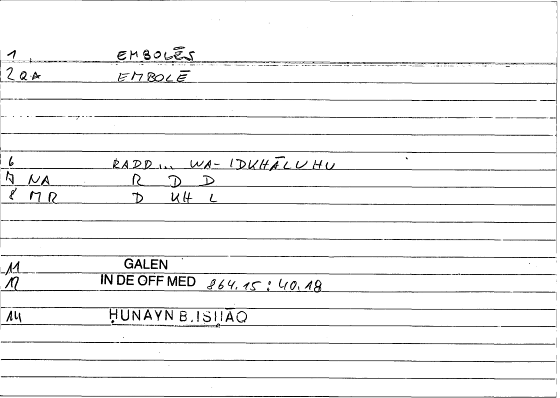 1 EMBOLĒS
2 QA EMBOLĒ
6 RADD... WA-IDKHĀLUHU
7 NA R D D
8 MR D KH L
11 GALEN
12 IN DE OFF MED 864.15 : 40.18
14 ḤUNAYN B. ISḤĀQ